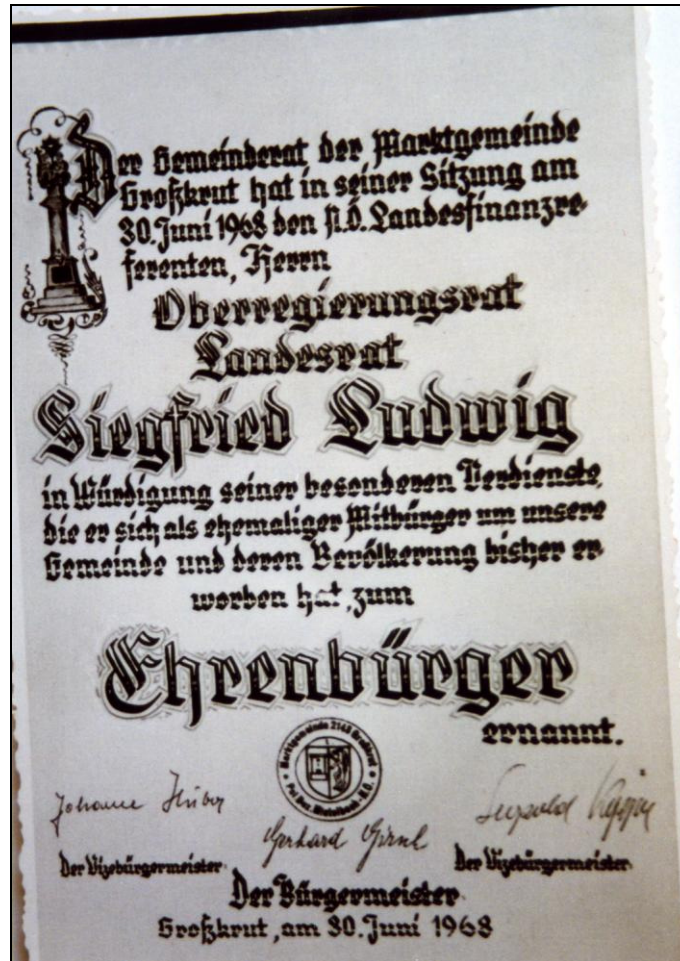 Der Gemeinderat der Marktgemeinde
Großkrut hat in seiner Sitzung am
30. Juni 1968 den N.Ö. Landesfinanzre-
ferenten, Herrn
Oberregierungsrat
Landesrat
Siegfried Ludwig
in Würdigung seiner besonderen Verdienste,
die er sich als ehemaliger Mitbürger um unsere
Gemeinde und deren Bevölkerung bisher er-
worben hat, zum
Ehrenbürger
ernannt.
Marktgemeinde 2143 Großkrut
Pol. Bez. Mistelbach - N.Ö.
Johann Huber
Leopold
Gerhard Girsch
Der Vizebürgermeister
Der Vizebürgermeister
Der Bürgermeister
Großkrut, am 30. Juni 1968